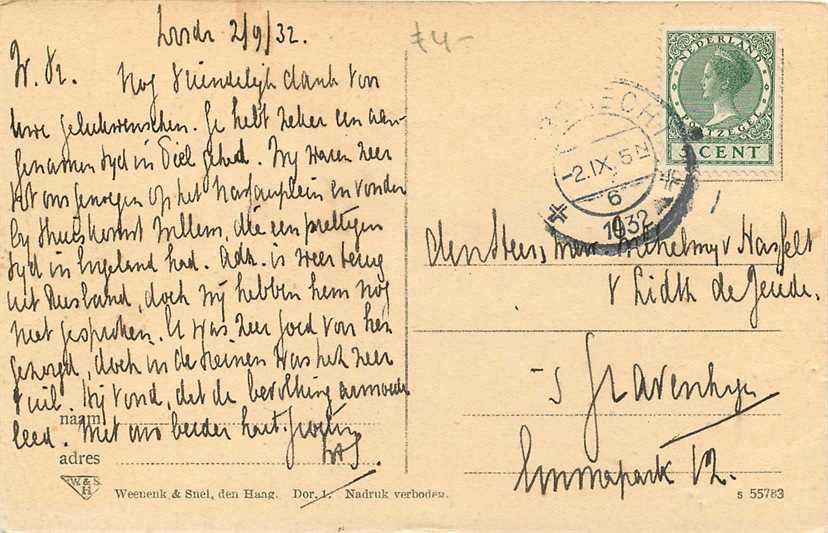 2/9/32.
£4-
W. Hr. Nog vriendelijk dank voor
Uwe gelukwenschen. Je hebt zeker een aan-
genamen tijd in Tiel gehad. Wij waren zeer
tot ons genoegen op het Nassauplein en vonden
bij thuiskomst Willem, die een prettigen
tijd in Engeland had. Adr. is weer terug
uit Duesland, doch wij hebben hem nog
niet gesproken. Er was zeer goed voor hen
gezorgd, doch in de treinen was het zeer
vuil. Hij vond, dat de bevolking armoede
leed. Met ons beider hart. groeten
naam
adres
W. & S. H
Weenenk & Snel, den Haag. Dor. 1. Nadruk verboden.
NEDERLAND
POSTZEGEL
5 CENT
2.IX. 5N
6
1932
den Heer, Mr. Wilhelmy v Hasselt
v Lidth de Jeude.
s Gravenhage
Emmapark 12.
s 55783